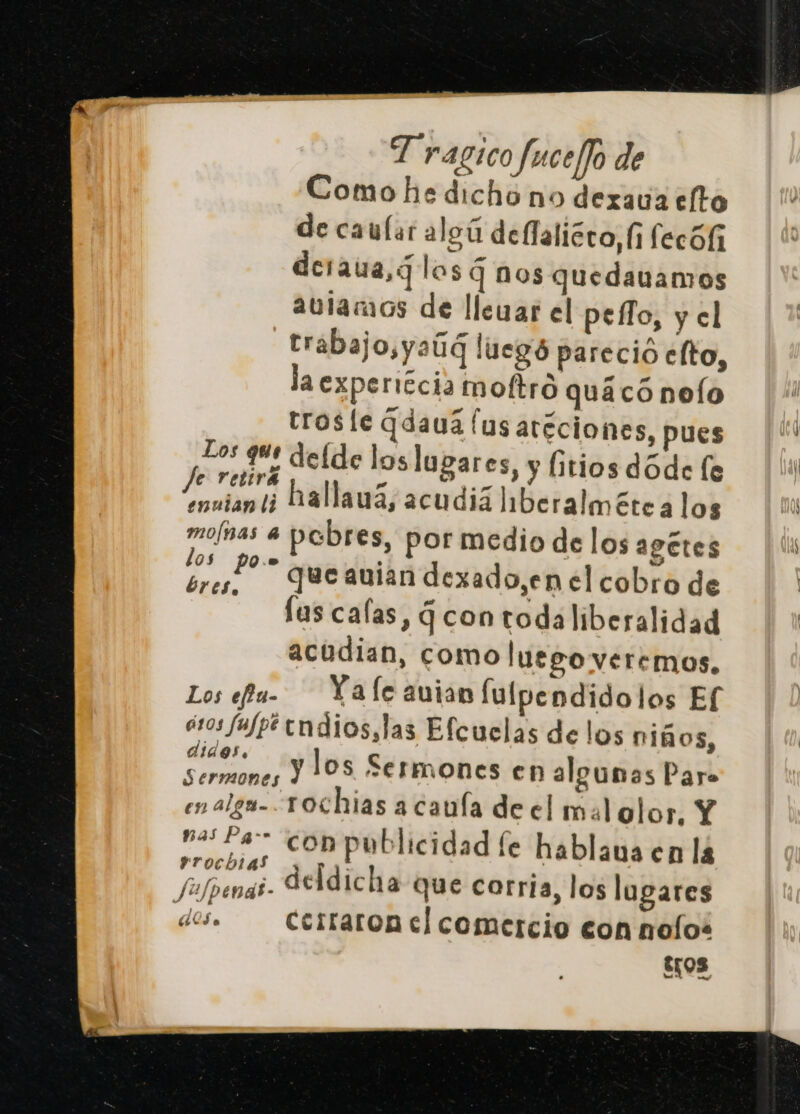 Tragico fuceſſo de
Como he dicho no dexaua eſto
de cauſar algũ deſſaliẽto, ſi ſecõſi
deraua, q̃ los q̃ nos quedauamos
auiamos de lleuar el peſſo, y el
trabajo, yaũq̃ luegó pareciò eſto,
la experiẽcia moſtrò quã cõ noſo
tros ſe q̃dauã ſus atẽciones, pues
deſde los lugares, y ſitios dõde ſe
hallauã, acudiã liberalmẽte a los
pobres, por medio de los agẽtes
que auian dexado, en el cobro de
ſus caſas, q̃ con toda liberalidad
acudian, como luego veremos.
Ya ſe auian ſuſpendido los Eſ
tndios, las Eſcuelas de los niños,
y los Sermones en algunas Par-
rochias a cauſa de el mal olor. Y
con publicidad ſe hablaua en la
deſdicha que corria, los lugares
cerraron el comercio con noſo-
tros
Los que
ſe retirã
enuian li
moſnas a
los po-
bres.
Los eſtu-
dios ſuſpẽ
didos.
Sermones
en algu-
nas Pa-
rrochias
ſuſpendi-
dos.